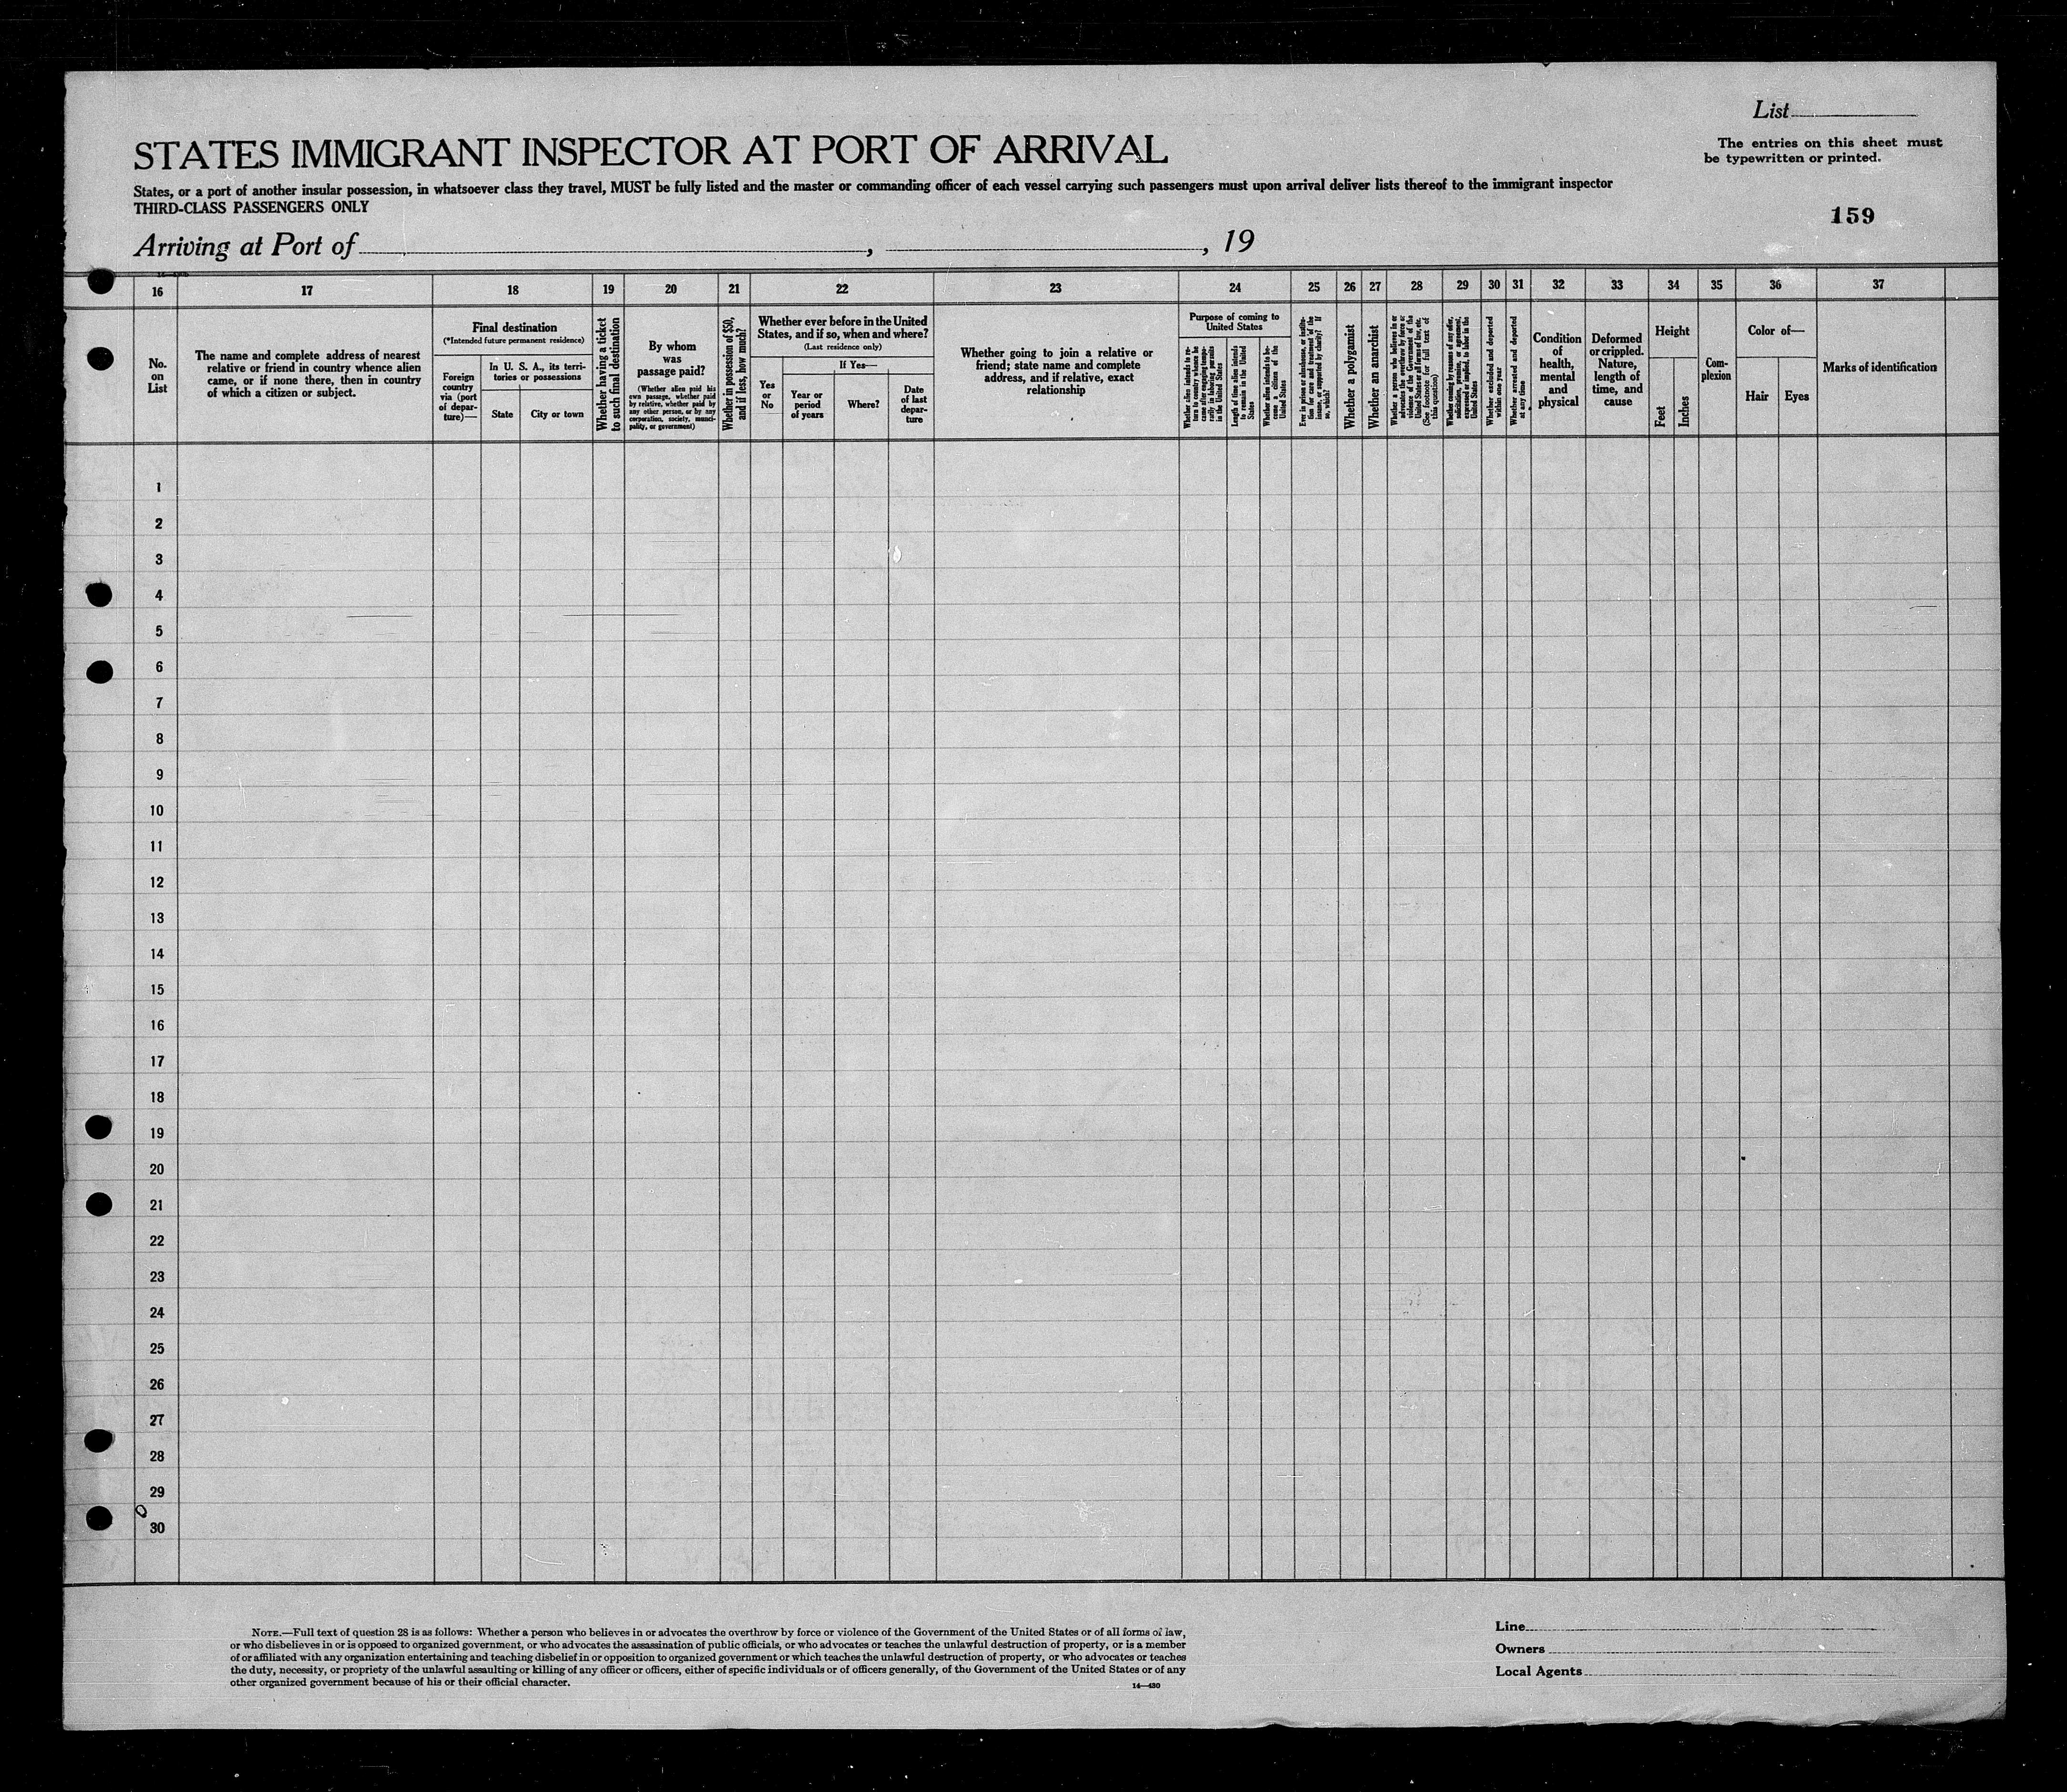 List
STATES IMMIGRANT INSPECTOR AT PORT OF ARRIVAL
The entries on this sheet must
be typewritten or printed.
States, or a port of another insular possession, in whatsoever class they travel, MUST be fully listed and the master or commanding officer of each vessel carrying such passengers must upon arrival deliver lists thereof to the immigrant inspector
THIRD-CLASS PASSENGERS ONLY
159
Arriving at Port of , , 19
16 17 18 19 20 21 22 23 24 25 26 27 28 29 30 31 32 33 34 35 36 37
No.
on
List
The name and complete address of nearest
relative or friend in country whence alien
came, or if none there, then in country
of which a citizen or subject.
Final destination
(*Intended future permanent residence)
Foreign
country
via (port
of depar-
ture)—
In U. S. A., its terri-
tories or possessions
State
City or town
Whether having a ticket
to such final destination
By whom
was
passage paid?
(Whether alien paid his
own passage, whether paid
by relative, whether paid by
any other person, or by any
corporation, society, munici-
pality, or government)
Whether in possession of $50,
and if less, how much?
Whether ever before in the United
States, and if so, when and where?
(Last residence only)
Yes
or
No
If Yes—
Year or
period
of years
Where?
Date
of last
depar-
ture
Whether going to join a relative or
friend; state name and complete
address, and if relative, exact
relationship
Purpose of coming to
United States
Whether alien intends to re-
turn to country whence he
came after engaging tempo-
rarily in laboring pursuits
in the United States
Length of time alien intends
to remain in the United
States
Whether alien intends to be-
come a citizen of the
United States
Ever in prison or almshouse, or institu-
tion for care and treatment of the
insane, or supported by charity? If
so, which?
Whether a polygamist
Whether an anarchist
Whether a person who believes in or
advocates the overthrow by force or
violence of the Government of the
United States or all forms of law, etc.
(See footnote for full text of
this question)
Whether coming by reasons of any offer,
solicitation, promise, or agreement,
expressed or implied, to labor in the
United States
Whether excluded and deported
within one year
Whether arrested and deported
at any time
Condition
of
health,
mental
and
physical
Deformed
or crippled.
Nature,
length of
time, and
cause
Height
Feet
Inches
Com-
plexion
Color of—
Hair
Eyes
Marks of identification
1
2
3
4
5
6
7
8
9
10
11
12
13
14
15
16
17
18
19
20
21
22
23
24
25
26
27
28
29
30
NOTE.—Full text of question 28 is as follows: Whether a person who believes in or advocates the overthrow by force or violence of the Government of the United States or of all forms of law,
or who disbelieves in or is opposed to organized government, or who advocates the assassination of public officials, or who advocates or teaches the unlawful destruction of property, or is a member
of or affiliated with any organization entertaining and teaching disbelief in or opposition to organized government or which teaches the unlawful destruction of property, or who advocates or teaches
the duty, necessity, or propriety of the unlawful assaulting or killing of any officer or officers, either of specific individuals or of officers generally, of the Government of the United States or of any
other organized government because of his or their official character.
14—430
Line
Owners
Local Agents